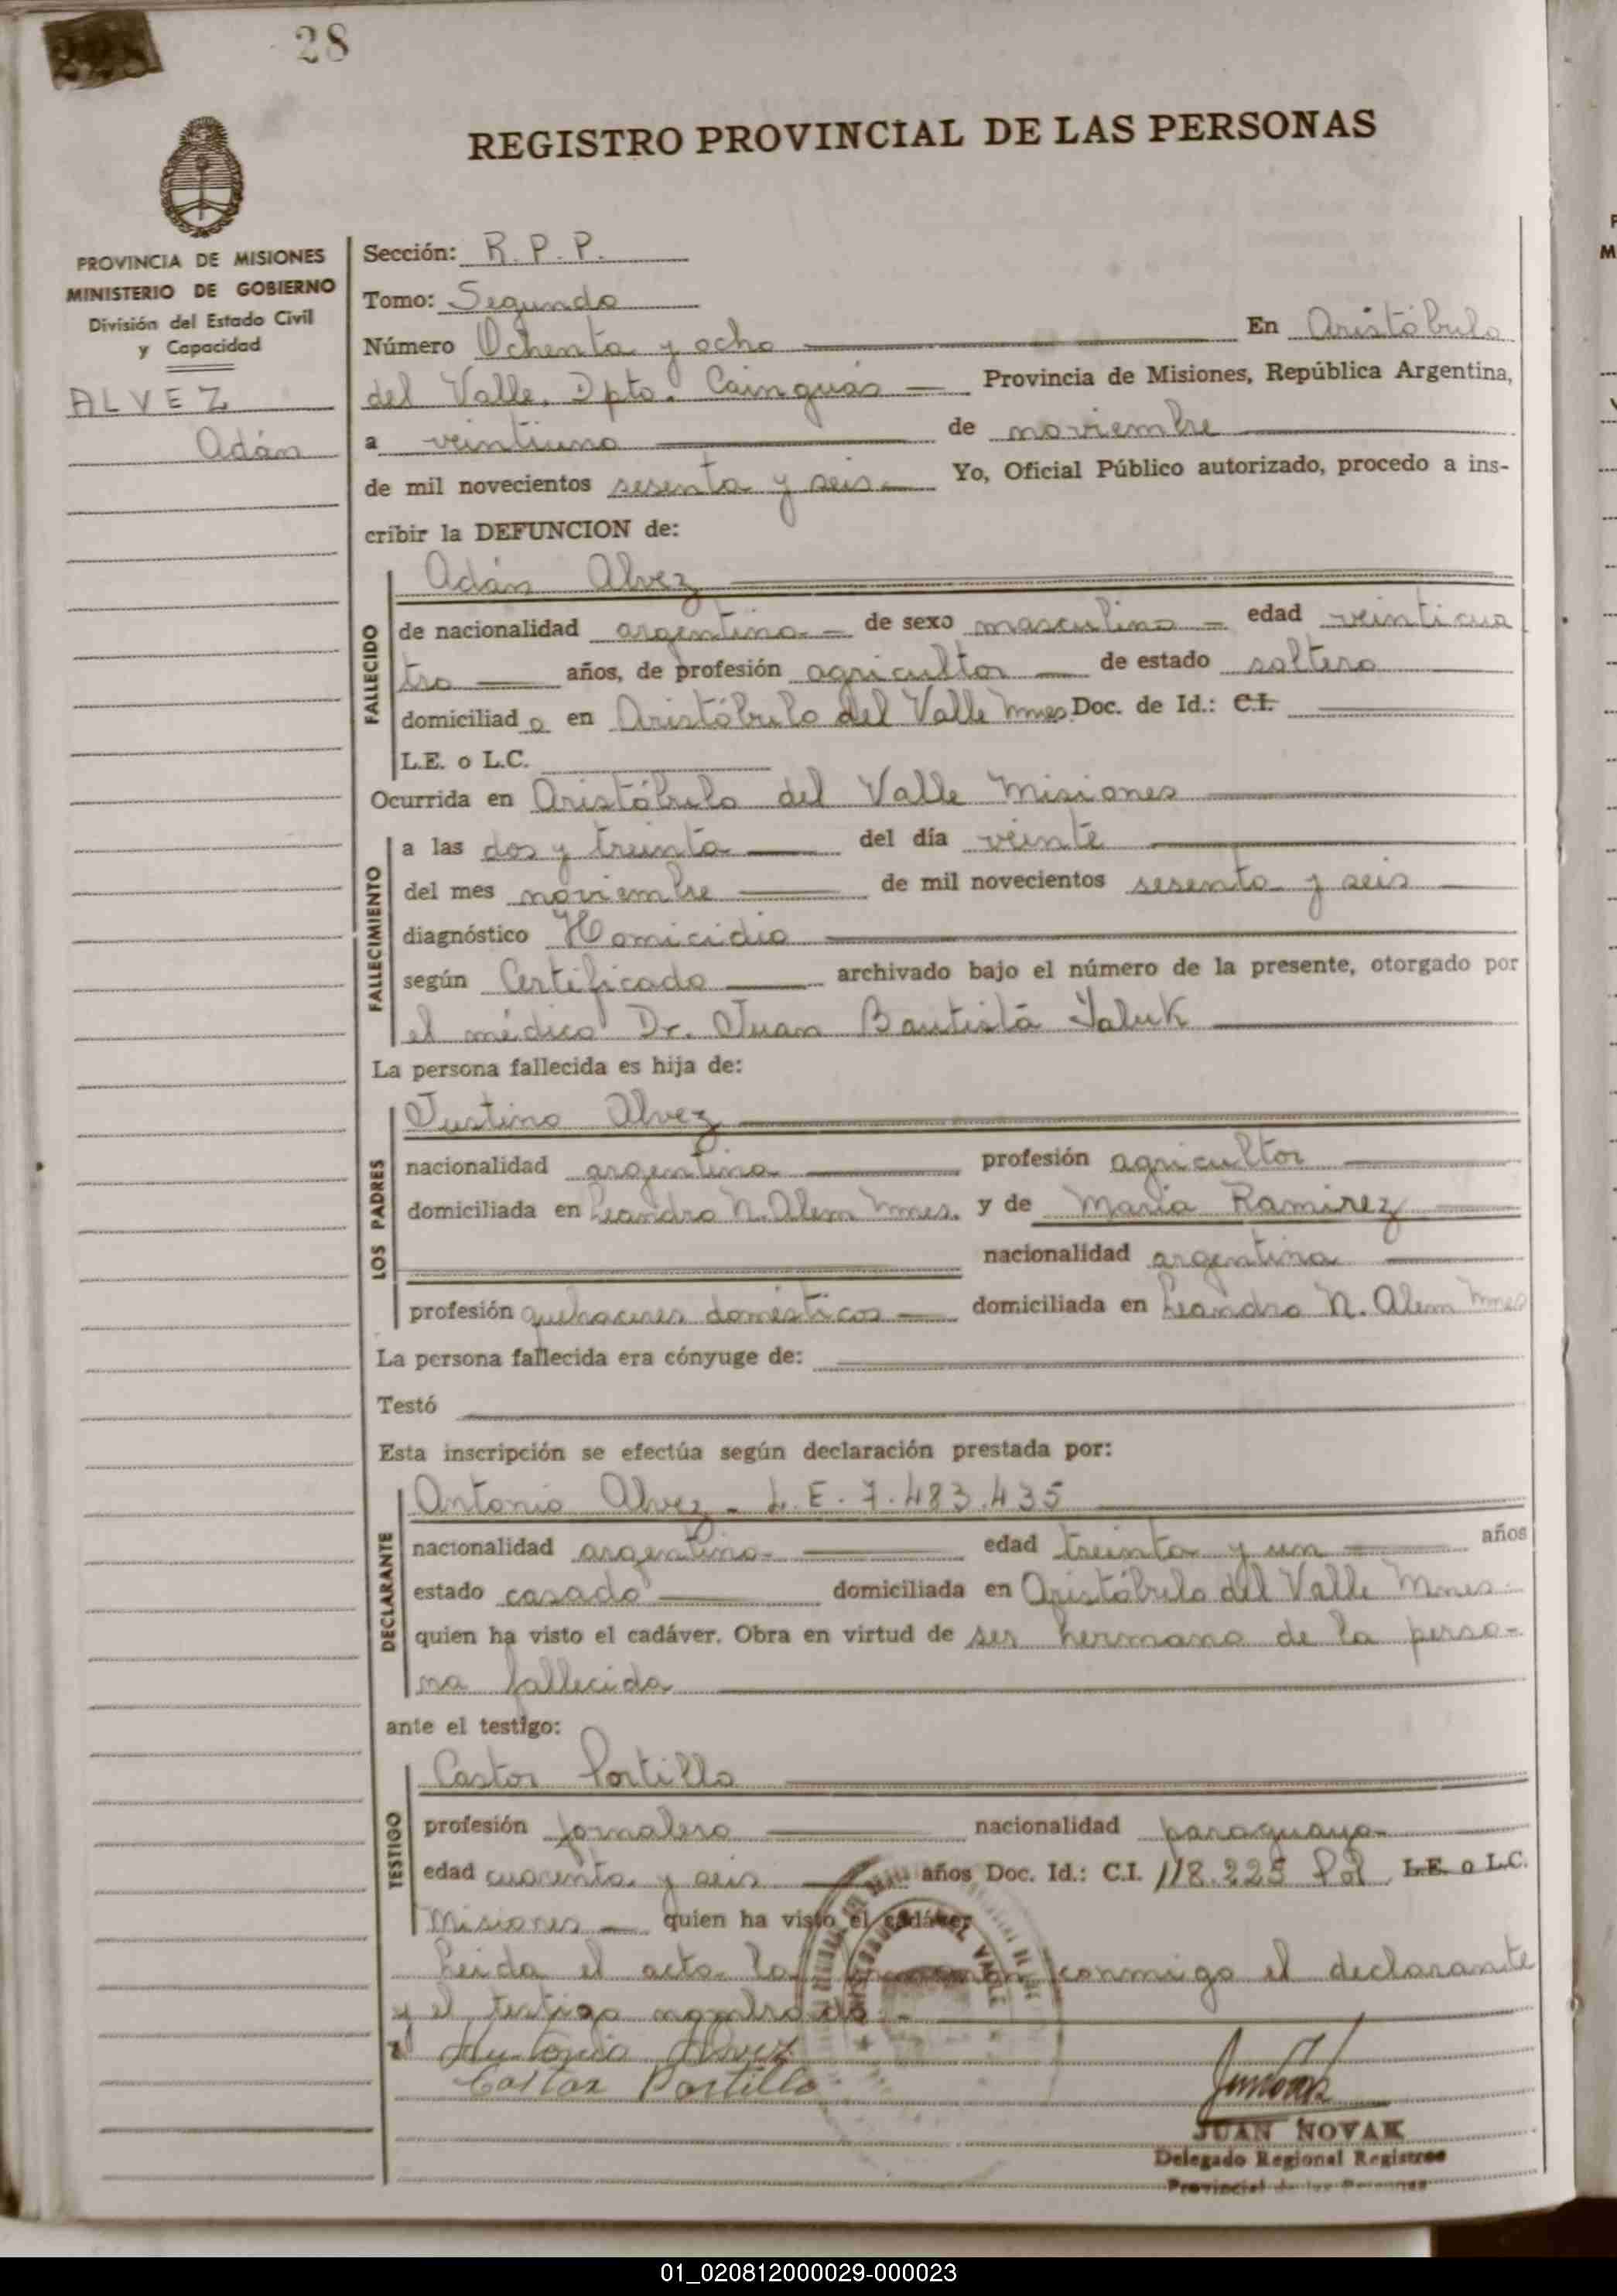 228
28
REGISTRO PROVINCIAL DE LAS PERSONAS
PROVINCIA DE MISIONES
MINISTERIO DE GOBIERNO
División del Estado Civil
y Capacidad
ALVEZ
Adán
Sección: R. P. P.
Tomo: Segundo
Número Ochenta y ocho En Aristóbulo
del Valle, Dpto. Cainguás Provincia de Misiones, República Argentina,
a veintiuno de noviembre
de mil novecientos sesenta y seis Yo, Oficial Público autorizado, procedo a ins-
cribir la DEFUNCION de:
FALLECIDO
Adán Alvez
de nacionalidad argentina de sexo masculino edad veinticua
tro años, de profesión agricultor de estado soltero
domiciliado en Aristóbulo del Valle Mnes. Doc. de Id.: C.I.
L.E. o L.C.
Ocurrida en Aristóbulo del Valle Misiones
FALLECIMIENTO
a las dos y treinta del día veinte
del mes noviembre de mil novecientos sesenta y seis
diagnóstico Homicidio
según Certificado archivado bajo el número de la presente, otorgado por
el médico Dr. Juan Bautista Yaluk
La persona fallecida es hija de:
LOS PADRES
Justino Alvez
nacionalidad argentina profesión agricultor
domiciliada en Leandro N. Alem Mnes. y de Maria Ramirez
nacionalidad argentina
profesión quehaceres domésticos domiciliada en Leandro N. Alem Mnes
La persona fallecida era cónyuge de:
Testó
Esta inscripción se efectúa según declaración prestada por:
DECLARANTE
Antonio Alvez - L. E. 7.483.435
nacionalidad argentina edad treinta y un años
estado casado domiciliada en Aristóbulo del Valle Mnes
quien ha visto el cadáver. Obra en virtud de ser hermano de la perso-
na fallecida
ante el testigo:
TESTIGO
Castor Portillo
profesión jornalero nacionalidad paraguaya
edad cuarenta y seis años Doc. Id.: C.I. 118.225 Pol L.E. o L.C.
Misiones quien ha visto el cadáver
Leida el acta la firman conmigo el declarante
y el testigo nombrado.-
Antonio Alvez
Castor Portillo
JUAN NOVAK
Delegado Regional Registros
Provincial de las Personas
01_020812000029-000023